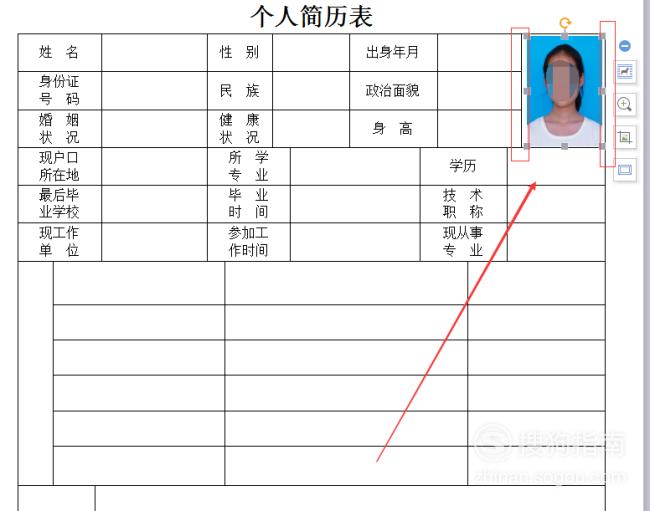 个人简历表
姓 名 性 别 出身年月
身份证
号 码
民 族 政治面貌
婚 姻
状 况
健 康
状 况
身 高
现户口
所在地
所 学
专 业
学历
最后毕
业学校
毕 业
时 间
技 术
职 称
现工作
单 位
参加工
作时间
现从事
专 业
搜狗指南
zhinan.sogou.com